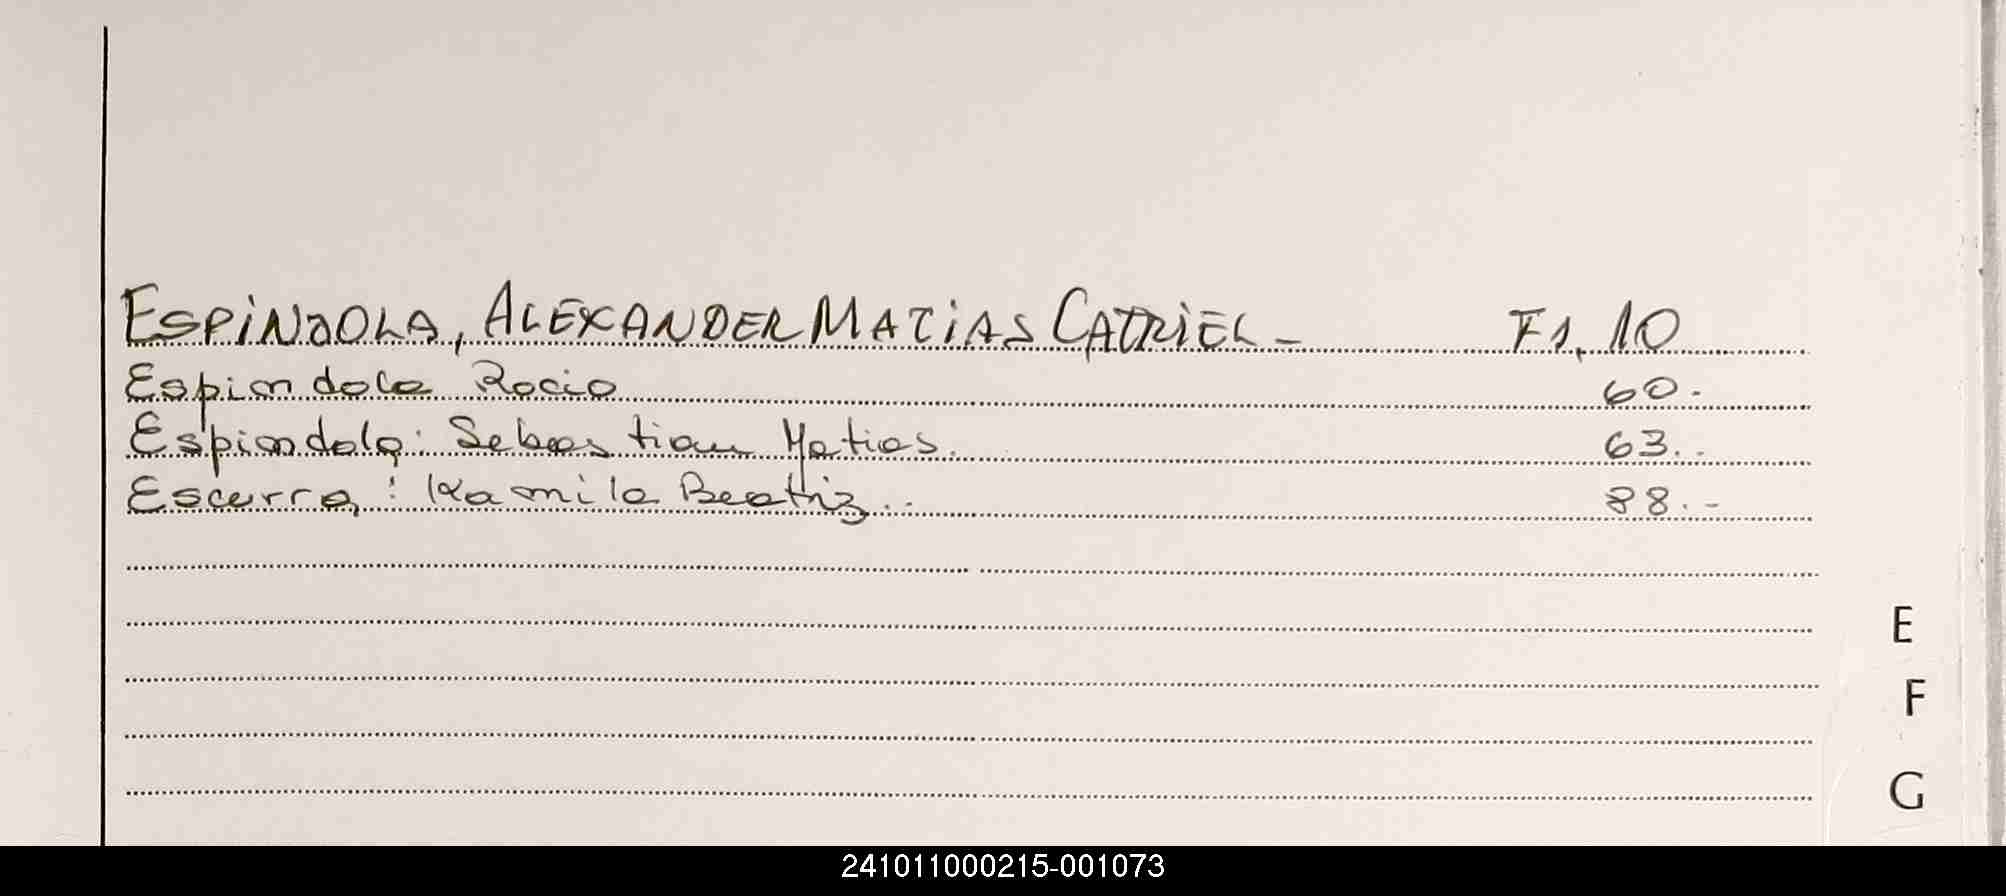 ESPINDOLA, ALEXANDER MATIAS CATRIEL - F1, 10
Espindola Rocio 60.
Espindola: Sebastian Matias. 63..
Escurra: Kamila Beatriz.. 88.-
E
F
G
241011000215-001073